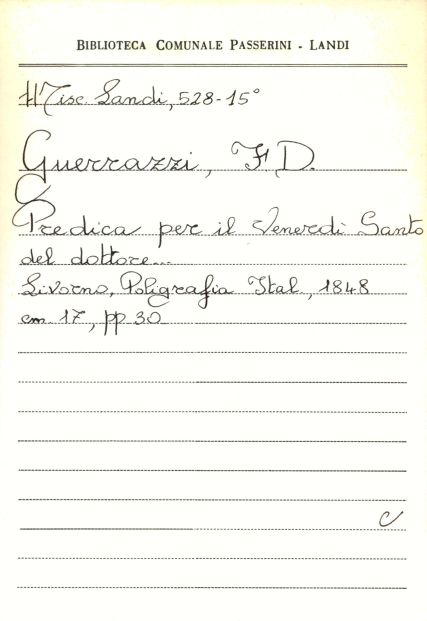 BIBLIOTECA COMUNALE PASSERINI - LANDI
Misc. Landi, 528-15°
Guerrazzi, F D.
Predica per il Venerdì Santo
del dottore...
Livorno, Poligrafia Ital, 1848
cm. 17, pp 30
c